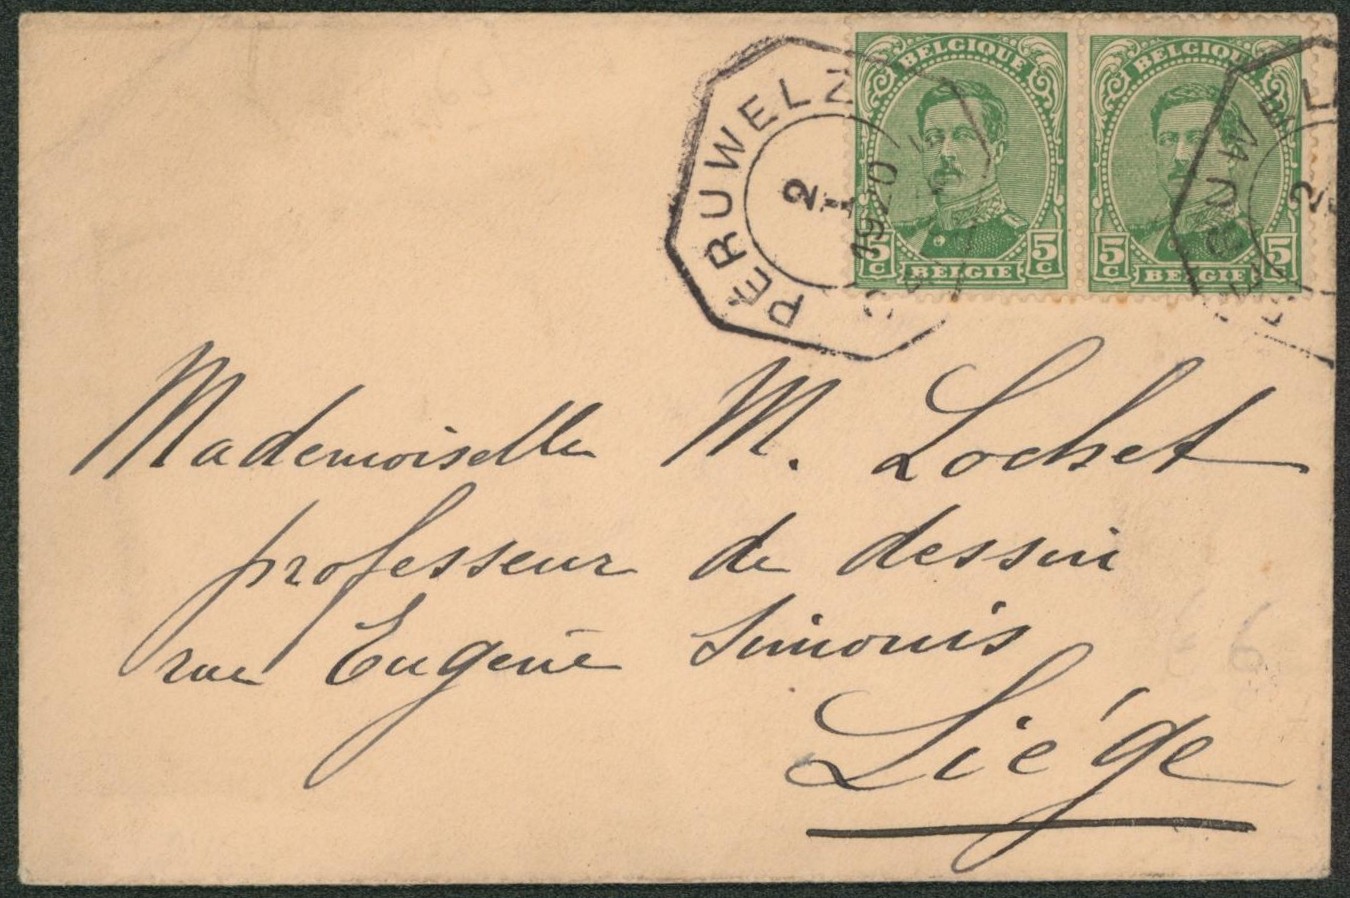 PÉRUWELZ
2
I
1920
BELGIQUE
5c BELGIE 5c
BELGIQUE
5c BELGIE 5c
Mademoiselle M. Lochet
professeur de dessin
rue Eugène Simonis
Liége